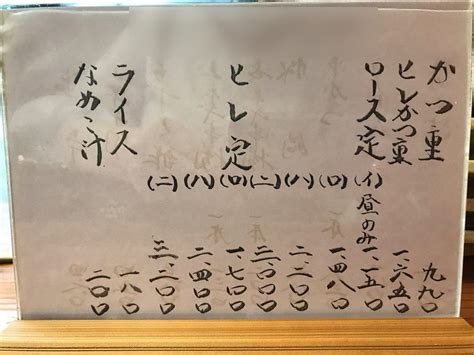 かつ重 九九〇
ヒレかつ重 一、六五〇
ロース定 (イ) 昼のみ 一、一五〇
(ロ) 一、四八〇
(ハ) 二、二〇〇
(ニ) 三、〇〇〇
ヒレ定 (ロ) 一、七〇〇
(ハ) 二、四〇〇
(ニ) 三、二〇〇
ライス 一八〇
なめこ汁 二〇〇